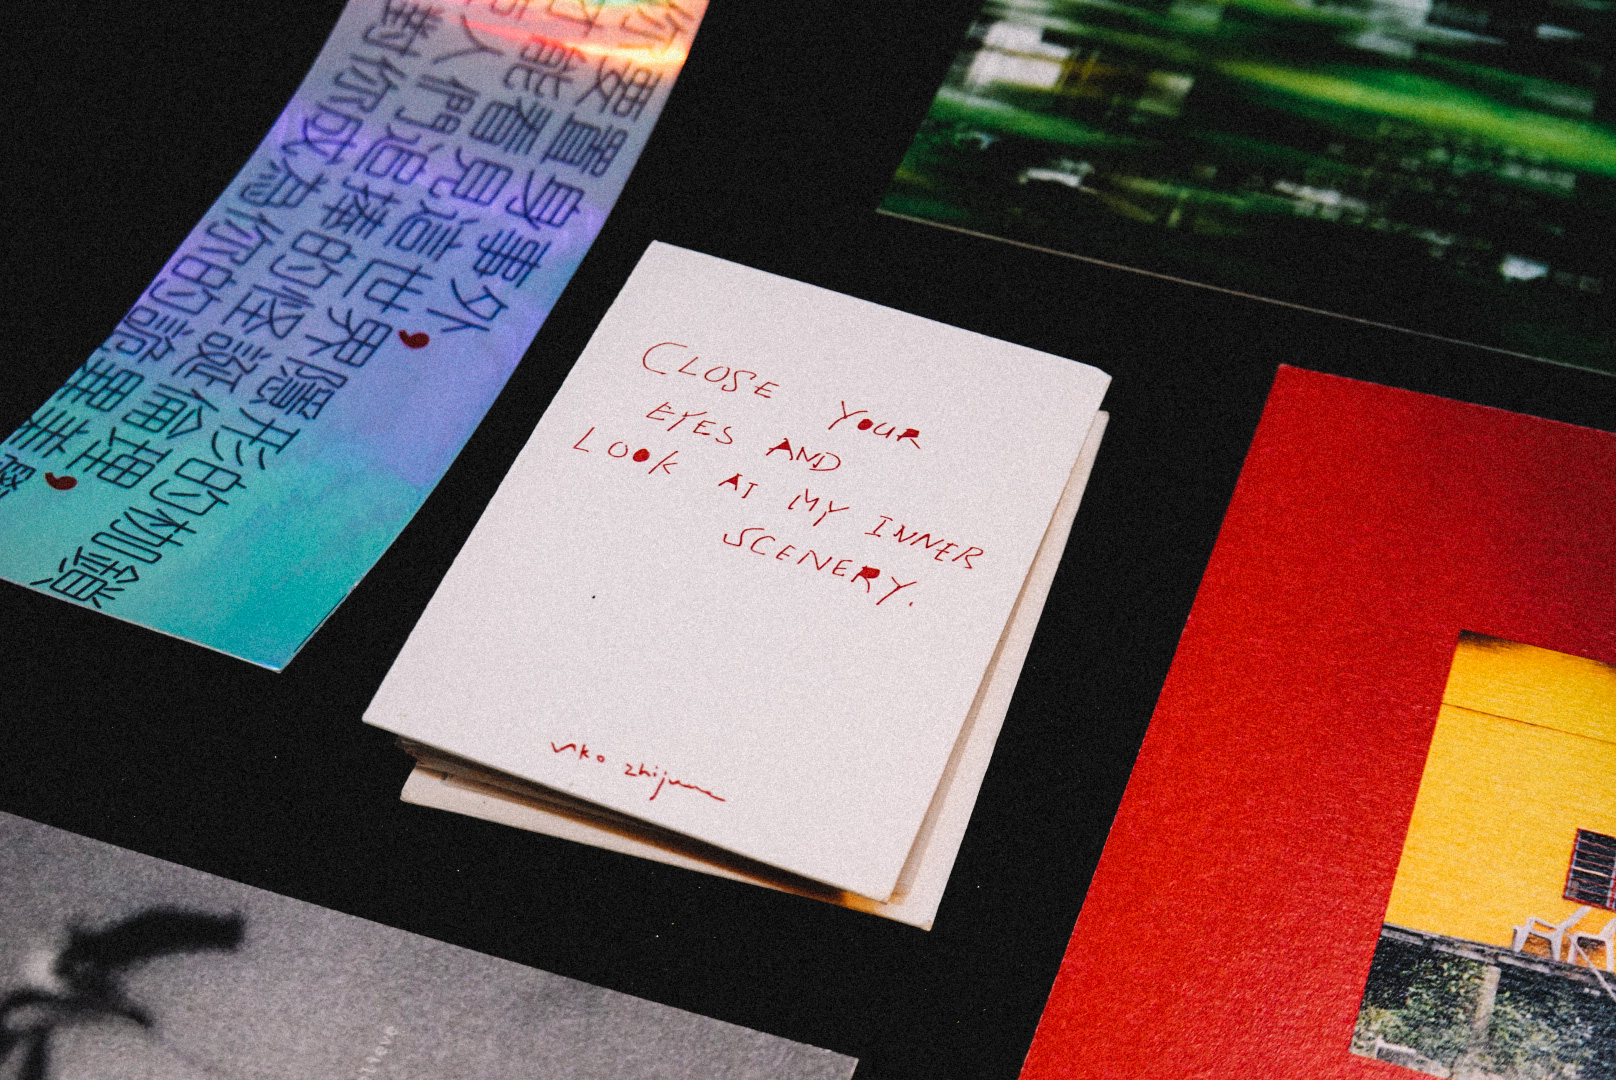 你要置身事外
才能看見這世界隱形的枷鎖
人們追捧的怪誕倫理
對你成為你的詭異
CLOSE YOUR
EYES AND
LOOK AT MY INNER
SCENERY.
viko zhijune